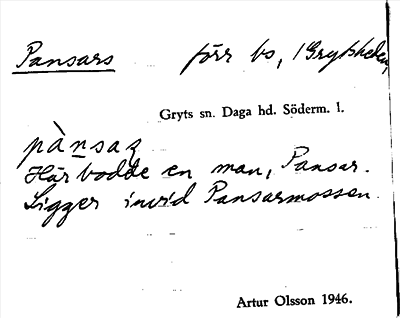 Pansars förr bs, /Grypheden,
Gryts sn. Daga hd. Söderm. l.
pànsaz
Här bodde en man, Pansar.
Ligger invid Pansarmossen.
Artur Olsson 1946.